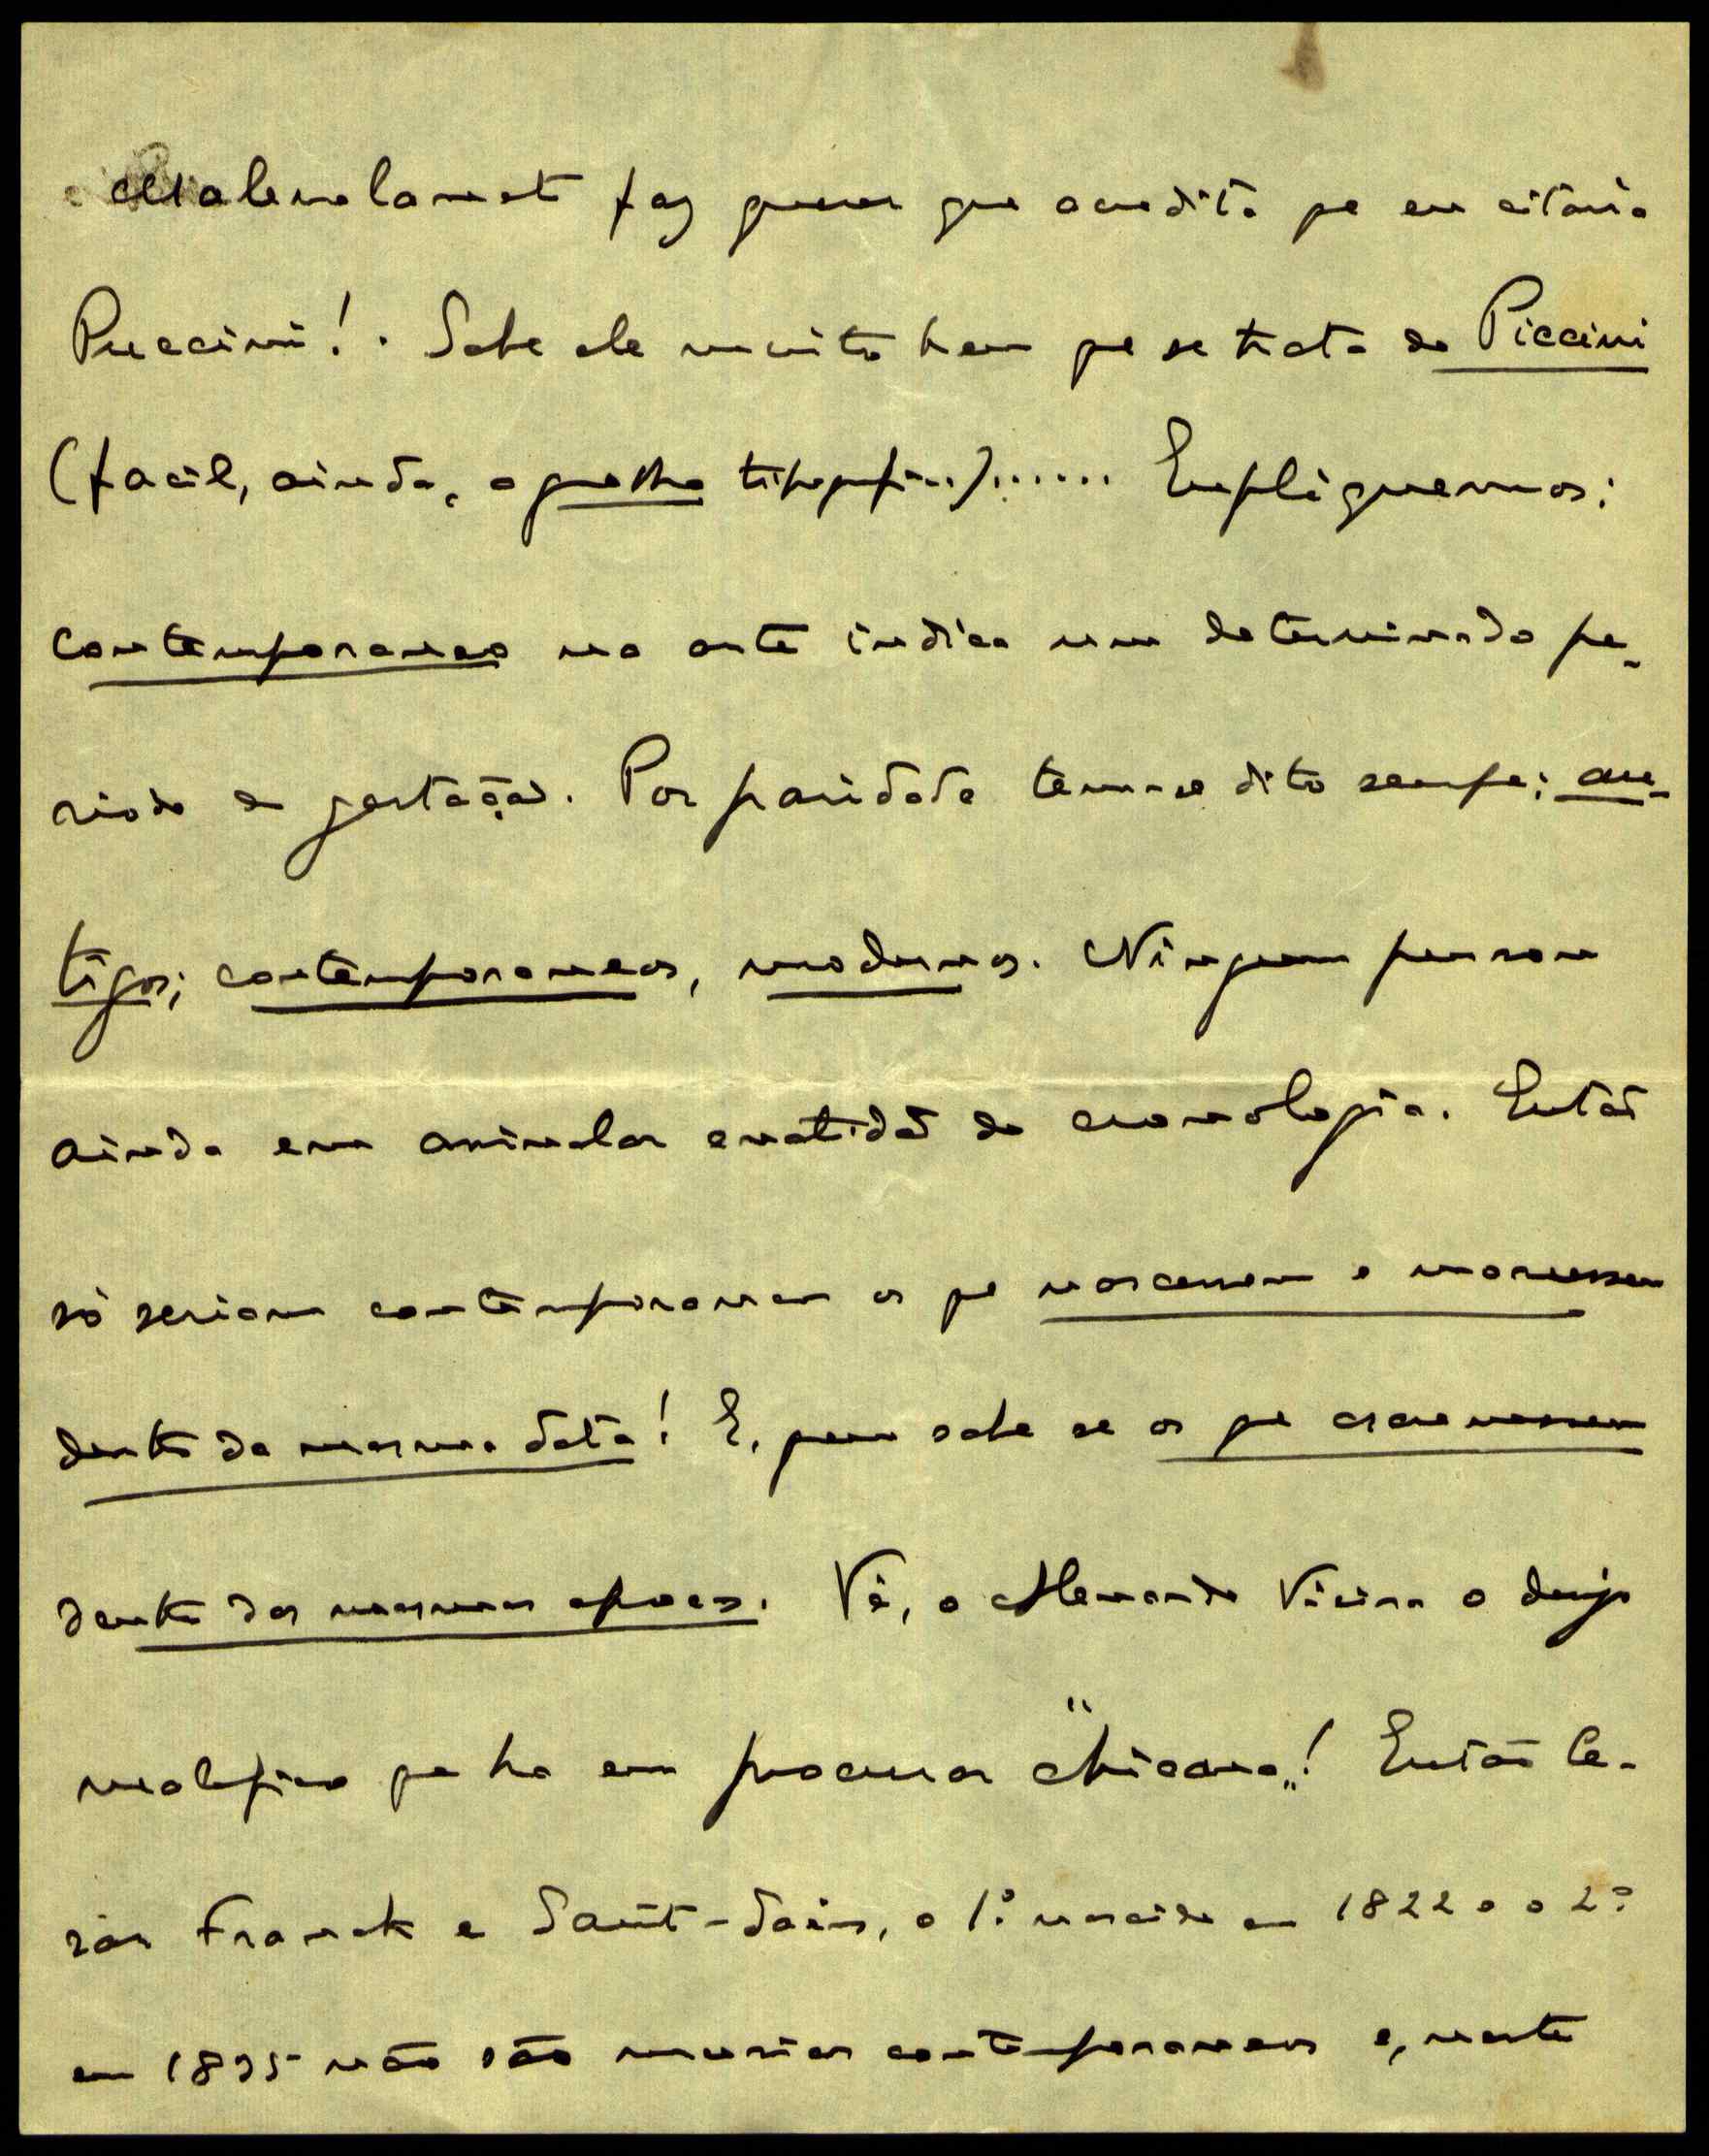 Malevolament faz querer que acredita que eu citaria
Puccini! . Sabe ele muito bem que se trata de Piccini
(facil, ainda, a gralha tipografica)...... Expliquemos:
contemporaneo na arte indica um determinado pe-
riodo de gestação. Por paridade tem-se dito sempre: an-
tigos; contemporaneos, modernos. Ninguem pensou
ainda em assinalar exatidão de cronologia. Então
só seriam contemporaneos os que nascessem e morressem
dentro da mesma data! E, quem sabe se os que escrevessem
dentro das mesmas epocas. Vê, o Alexandre Vieira o desejo
malefico que ha em procurar "chicana"! Então Ce-
sar Franck e Saint-Saëns, o 1.º nascido em 1822 e o 2.º
em 1835 não são musicos contemporaneos e, neste